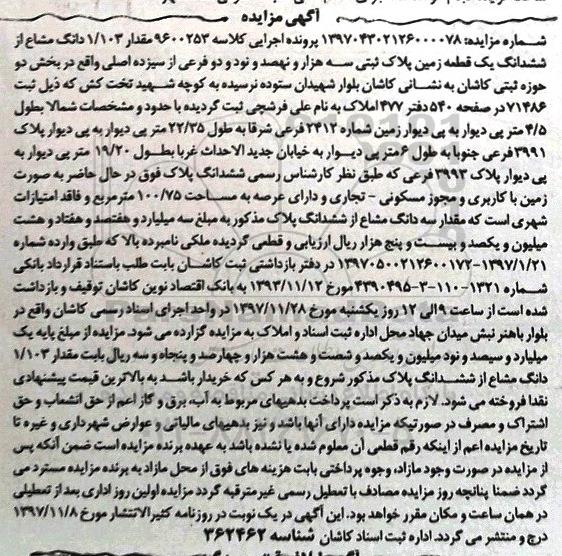 آگهی مزایده
شماره مزایده: ۱۳۹۷۰۴۳۰۲۱۲۶۰۰۰۰۷۸ پرونده اجرایی کلاسه ۹۶۰۰۲۵۳ مقدار ۱/۱۰۳ دانگ مشاع از
ششدانگ یک قطعه زمین پلاک ثبتی سه هزار و نهصد و نود و دو فرعی از سیزده اصلی واقع در بخش دو
حوزه ثبتی کاشان به نشانی کاشان بلوار شهیدان ستوده نرسیده به کوچه شهید تخت کش که ذیل ثبت
۷۱۴۸۶ در صفحه ۵۴۰ دفتر ۴۷۷ املاک به نام علی فرشچی ثبت گردیده با حدود و مشخصات شمالا بطول
۴/۵ متر پی دیوار به پی دیوار زمین شماره ۲۴۱۲ فرعی شرقا به طول ۲۲/۳۵ متر پی دیوار به پی دیوار پلاک
۳۹۹۱ فرعی جنوبا به طول ۶ متر پی دیوار به خیابان جدید الاحداث غربا بطول ۱۹/۲۰ متر پی دیوار به
پی دیوار پلاک ۳۹۹۳ فرعی که طبق نظر کارشناس رسمی ششدانگ پلاک فوق در حال حاضر به صورت
زمین با کاربری و مجوز مسکونی - تجاری و دارای عرصه به مساحت ۱۰۰/۷۵ مترمربع و فاقد امتیازات
شهری است که مقدار سه دانگ مشاع از ششدانگ پلاک مذکور به مبلغ سه میلیارد و هفتصد و هفتاد و هشت
میلیون و یکصد و بیست و پنج هزار ریال ارزیابی و قطعی گردیده ملکی نامبرده بالا که طبق وارده شماره
۱۳۹۷۰۵۰۰۲۱۲۶۰۰۱۷۲-۱۳۹۷/۱/۲۱ در دفتر بازداشتی ثبت کاشان بابت طلب باستناد قرارداد بانکی
شماره ۱۳۲۱-۱۱۰-۳-۴۳۹۰۴۹۵ مورخ ۱۳۹۳/۱۱/۱۲ به بانک اقتصاد نوین کاشان توقیف و بازداشت
شده است از ساعت ۹ الی ۱۲ روز یکشنبه مورخ ۱۳۹۷/۱۱/۲۸ در واحد اجرای اسناد رسمی کاشان واقع در
بلوار باهنر نبش میدان جهاد محل اداره ثبت اسناد و املاک به مزایده گزارده می شود. مزایده از مبلغ پایه یک
میلیارد و سیصد و نود میلیون و یکصد و شصت و هشت هزار و چهارصد و پنجاه و سه ریال بابت مقدار ۱/۱۰۳
دانگ مشاع از ششدانگ پلاک مذکور شروع و به هر کس که خریدار باشد به بالاترین قیمت پیشنهادی
نقدا فروخته می شود. لازم به ذکر است پرداخت بدهیهای مربوط به آب، برق و گاز اعم از حق انشعاب و حق
اشتراک و مصرف در صورتیکه مزایده دارای آنها باشد و نیز بدهیهای مالیاتی و عوارض شهرداری و غیره تا
تاریخ مزایده اعم از اینکه رقم قطعی آن معلوم شده یا نشده باشد به عهده برنده مزایده است ضمن آنکه پس
از مزایده در صورت وجود مازاد، وجوه پرداختی بابت هزینه های فوق از محل مازاد به برنده مزایده مسترد می
گردد ضمنا چنانچه روز مزایده مصادف با تعطیل رسمی غیرمترقبه گردد مزایده اولین روز اداری بعد از تعطیلی
در همان ساعت و مکان مقرر خواهد بود. این آگهی در یک نوبت در روزنامه کثیرالانتشار مورخ ۱۳۹۷/۱۱/۸
درج و منتشر می گردد. اداره ثبت اسناد کاشان شناسه ۳۶۲۴۶۲